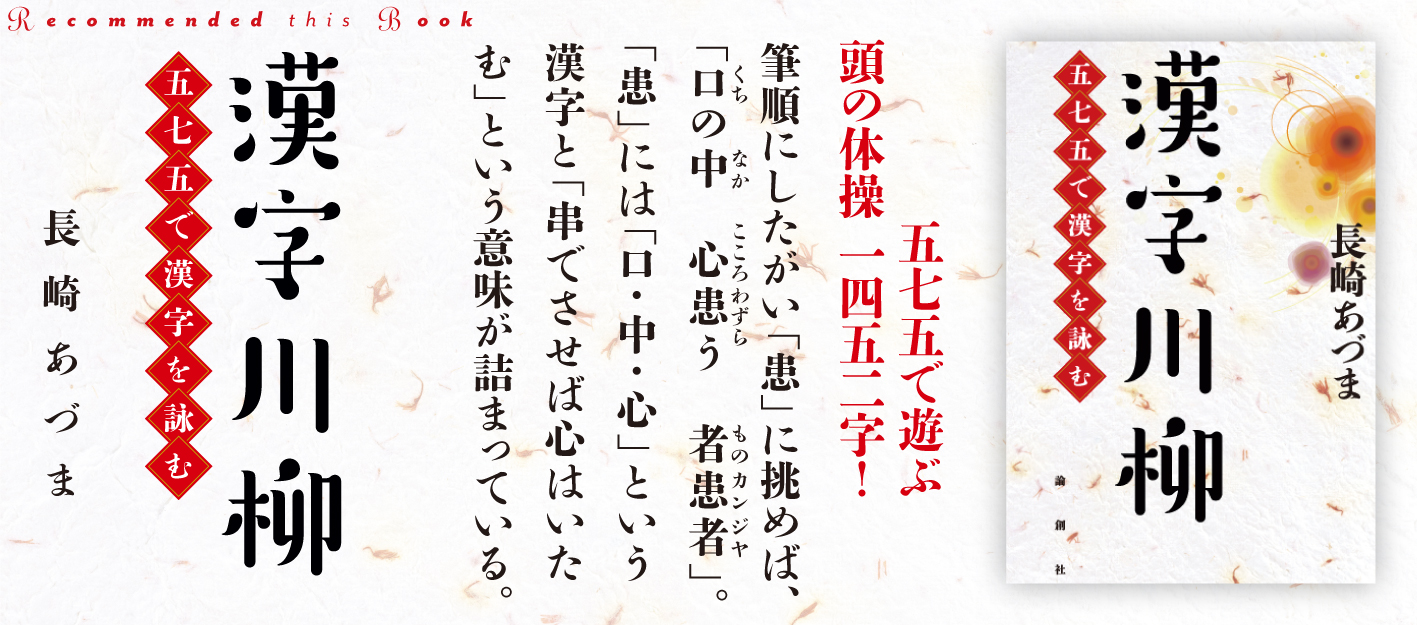 Recommended this Book
五七五で遊ぶ
頭の体操 一四五二字！
筆順にしたがい「患」に挑めば、
「口の中 心患う 者患者」。
くち なか こころわずら ものカンジヤ
「患」には「口・中・心」という
漢字と「串でさせば心はいた
む」という意味が詰まっている。
漢字川柳
五七五で漢字を詠む
長崎あづま
長崎あづま
漢字川柳
五七五で漢字を詠む
論創社